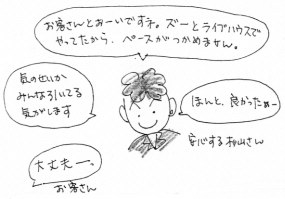 お客さんとおーいですネ。ズーとライブハウスで
やってたから、ペースがつかめません。
気のせいか
みんなろいてる
気がします
ほんと、良かったぁー
安心する杉山さん
大丈夫ー、
お客さん